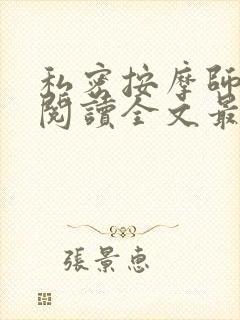 私密按摩師
閱讀全文最
張景惠